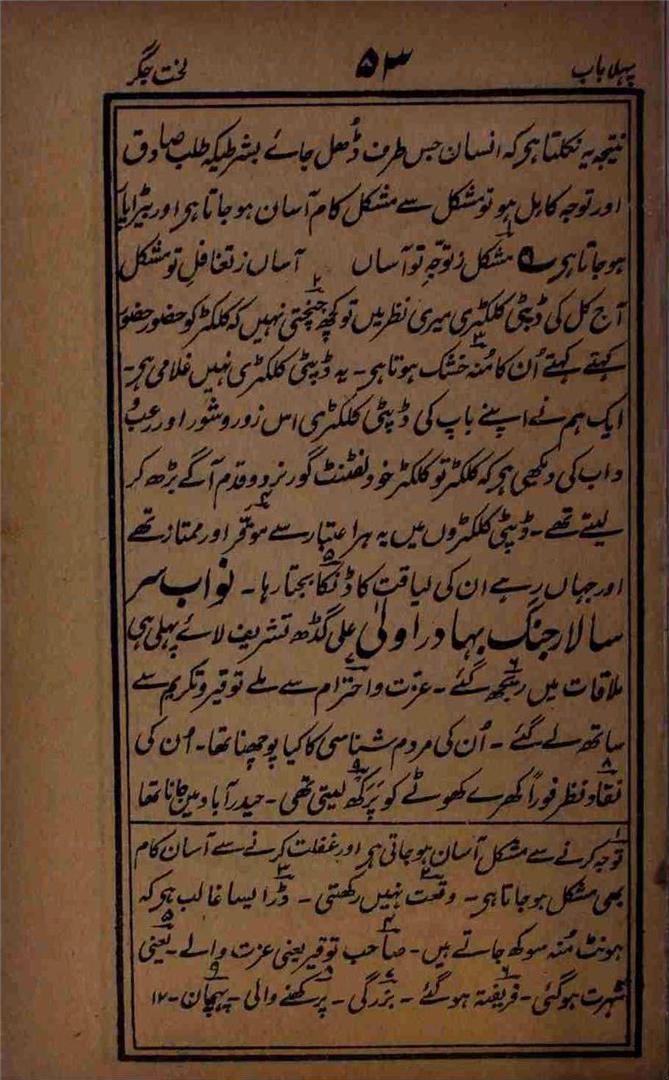 پہلا باب ۵۳ لخت جگر
نتیجہ یہ نکلتا ہی کہ انسان جس طرف ڈھل جائے بشرطیکہ طلب صادق
اور توجہ کامل ہو تو مشکل سے مشکل کام آسان ہو جاتا ہی اور بیڑا پار
ہو جاتا ہی ؎ مشکل ز توجّہِ تو آساں آساں ز تغافلِ تو مشکل
آج کل کی ڈپٹی کلکٹری میری نظر میں تو کچھ جچتی نہیں کہ کلکٹر کو حضور حضور
کہتے کہتے اُن کا مُنہ خشک ہوتا ہی۔ یہ ڈپٹی کلکٹری نہیں غلامی ہی۔
ایک ہم نے اپنے باپ کی ڈپٹی کلکٹری اس زور و شور اور رعب و
داب کی دیکھی ہی کہ کلکٹر تو کلکٹر خود لفٹنٹ گورنر دو قدم آگے بڑھ کر
لیتے تھے۔ ڈپٹی کلکٹروں میں یہ ہر اعتبار سے موقر اور ممتاز تھے
اور جہاں رہے ان کی لیاقت کا ڈنکا بجتا رہا۔ نواب سر
سالار جنگ بہادر اولیٰ علی گڈھ تشریف لائے پہلی ہی
ملاقات میں ریجھ گئے۔ عزت و احترام سے ملے توقیر و تکریم سے
ساتھ لے گئے۔ اُن کی مردم شناسی کا کیا پوچھنا تھا۔ اُن کی
نقاد نظر فوراً کھرے کھوٹے کو پَرکھ لیتی تھی۔ حیدرآباد میں جانا تھا
۱ توجہ کرنے سے مشکل آسان ہو جاتی ہی اور غفلت کرنے سے آسان کام
بھی مشکل ہو جاتا ہی۔ ۲ وقعت نہیں رکھتی۔ ۳ ڈر ایسا غالب ہی کہ
ہونٹ مُنہ سوکھ جاتے ہیں۔ ۴ صاحب توقیر یعنی عزت والے۔ ۵ یعنی
شہرت ہو گئی۔ ۶ فریفتہ ہو گئے۔ ۷ بزرگی۔ ۸ پرکھنے والی۔ ۹ پہچان۔ ۱۲